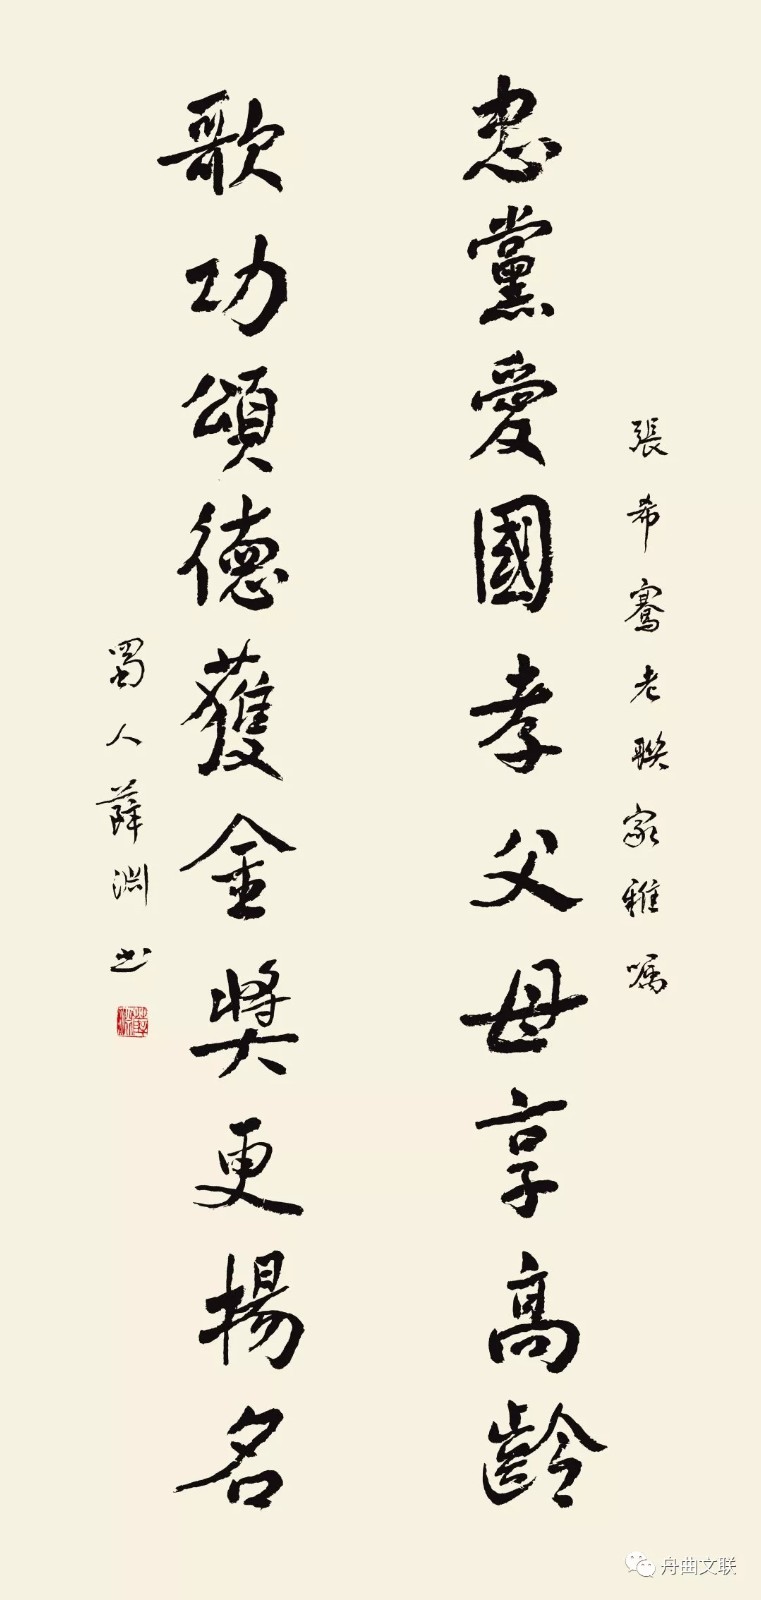 張希騫老聯家雅嘱
忠黨愛國孝父母享高齡
歌功頌德獲金奬更揚名
蜀人薛淵书
舟曲文联